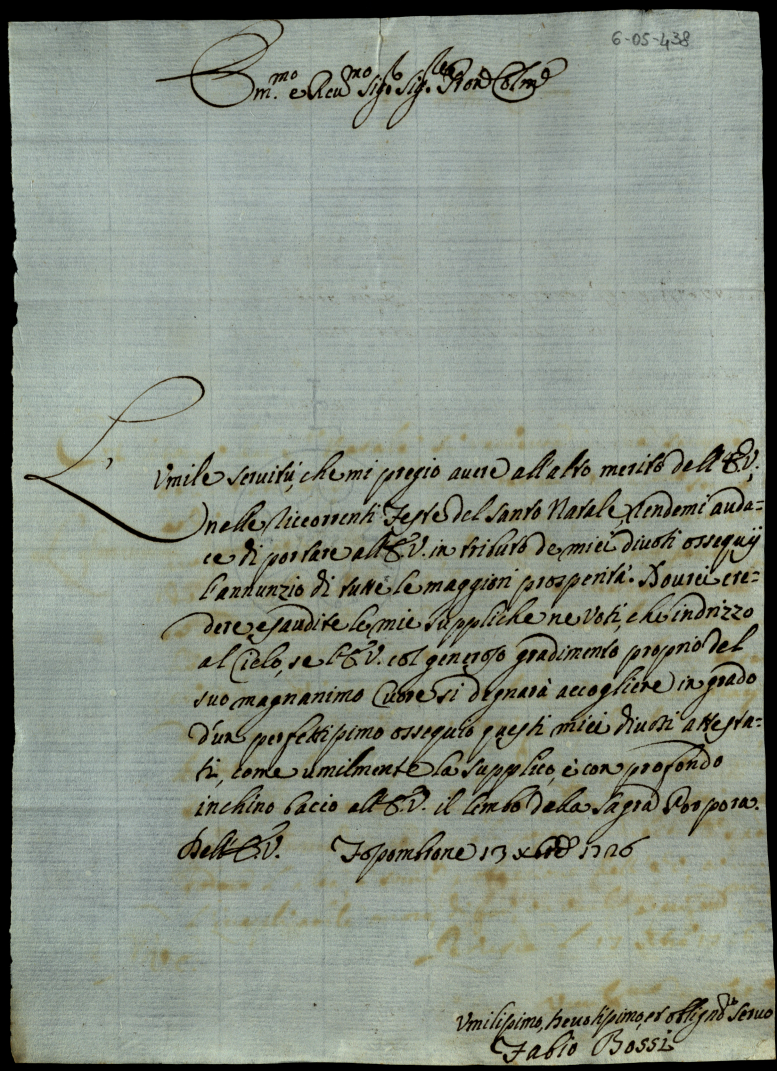 6-05-438
Em.mo e Reu.mo Sig.r Sig.r Pron Col.mo
L'Vmile seruitù, che mi pregio auere all'alto merito dell'E.V.,
nelle ricorrenti Feste del Santo Natale, rendemi auda=
ce di portare all'E.V. in tributo de miei diuoti ossequij
l'annunzio di tutte le maggiori prosperità. Dourei cre=
dere esaudite le mie suppliche ne Voti, che indrizzo
al Cielo, se l'E.V. col generoso gradimento proprio del
suo magnanimo Cuore si degnarà accogliere in grado
d'un perfettissimo ossequio questi miei diuoti attesta=
ti, come umilmente la supplico, è con profondo
inchino bacio all'E.V. il lembo della Sagra Porpora.
Dell'E.V. Fospombrone 13 Xbre 1726
Vmilissimo, Deuotissimo, et obligad.mo Seruo
Fabio Bossi